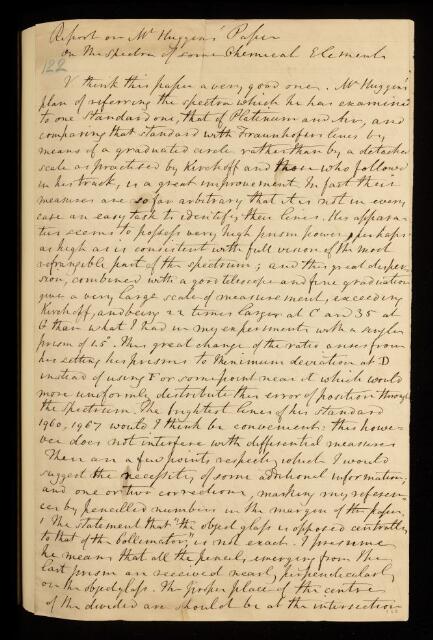 Report on Mr Huggins' Paper
on the Spectra of some Chemical Elements
122
I think this paper a very good one. Mr Huggins'
plan of referring the spectra which he has examined
to one standard one, that of Platinum and Air, and
comparing that standard with Fraunhofer's lines by
means of a graduated circle rather than by a detached
scale as practised by Kirchoff and those who followed
in his track, is a great improvement. In fact their
measures are so far arbitrary that it is not in every
case an easy task to identify their lines. His appara-
tus seems to possess very high prism power, perhaps
as high as is consistent with full vision of the most
refrangible part of the spectrum; and this great disper-
sion, combined with a good telescope and fine graduation
give a very large scale of measurement, exceeding
Kirchoff, and being 22 times larger at C and 35 at
G than what I had in my experiments with a single
prism of 45°. This great change of the ratio arises from
his setting his prisms to Minimum deviation at D
instead of using F or some point near it which would
more uniformly distribute this error of position through
the spectrum. The brightest lines of his standard
1960, 1967 would I think be convenient: this howe-
ver does not interfere with differential measures
There are a few points respecting which I would
suggest the necessity of some additional information;
and one or two corrections, marking my referen-
ces by pencilled numbers in the margin of the paper.
1 The statement that "the object glass is opposed centrally
to that of the collimator," is not exact. I presume
he means that all the pencils emerging from the
last prism are received nearly perpendicularly
on the object glass. The proper place of the centre
of the divided arc should be at the intersection